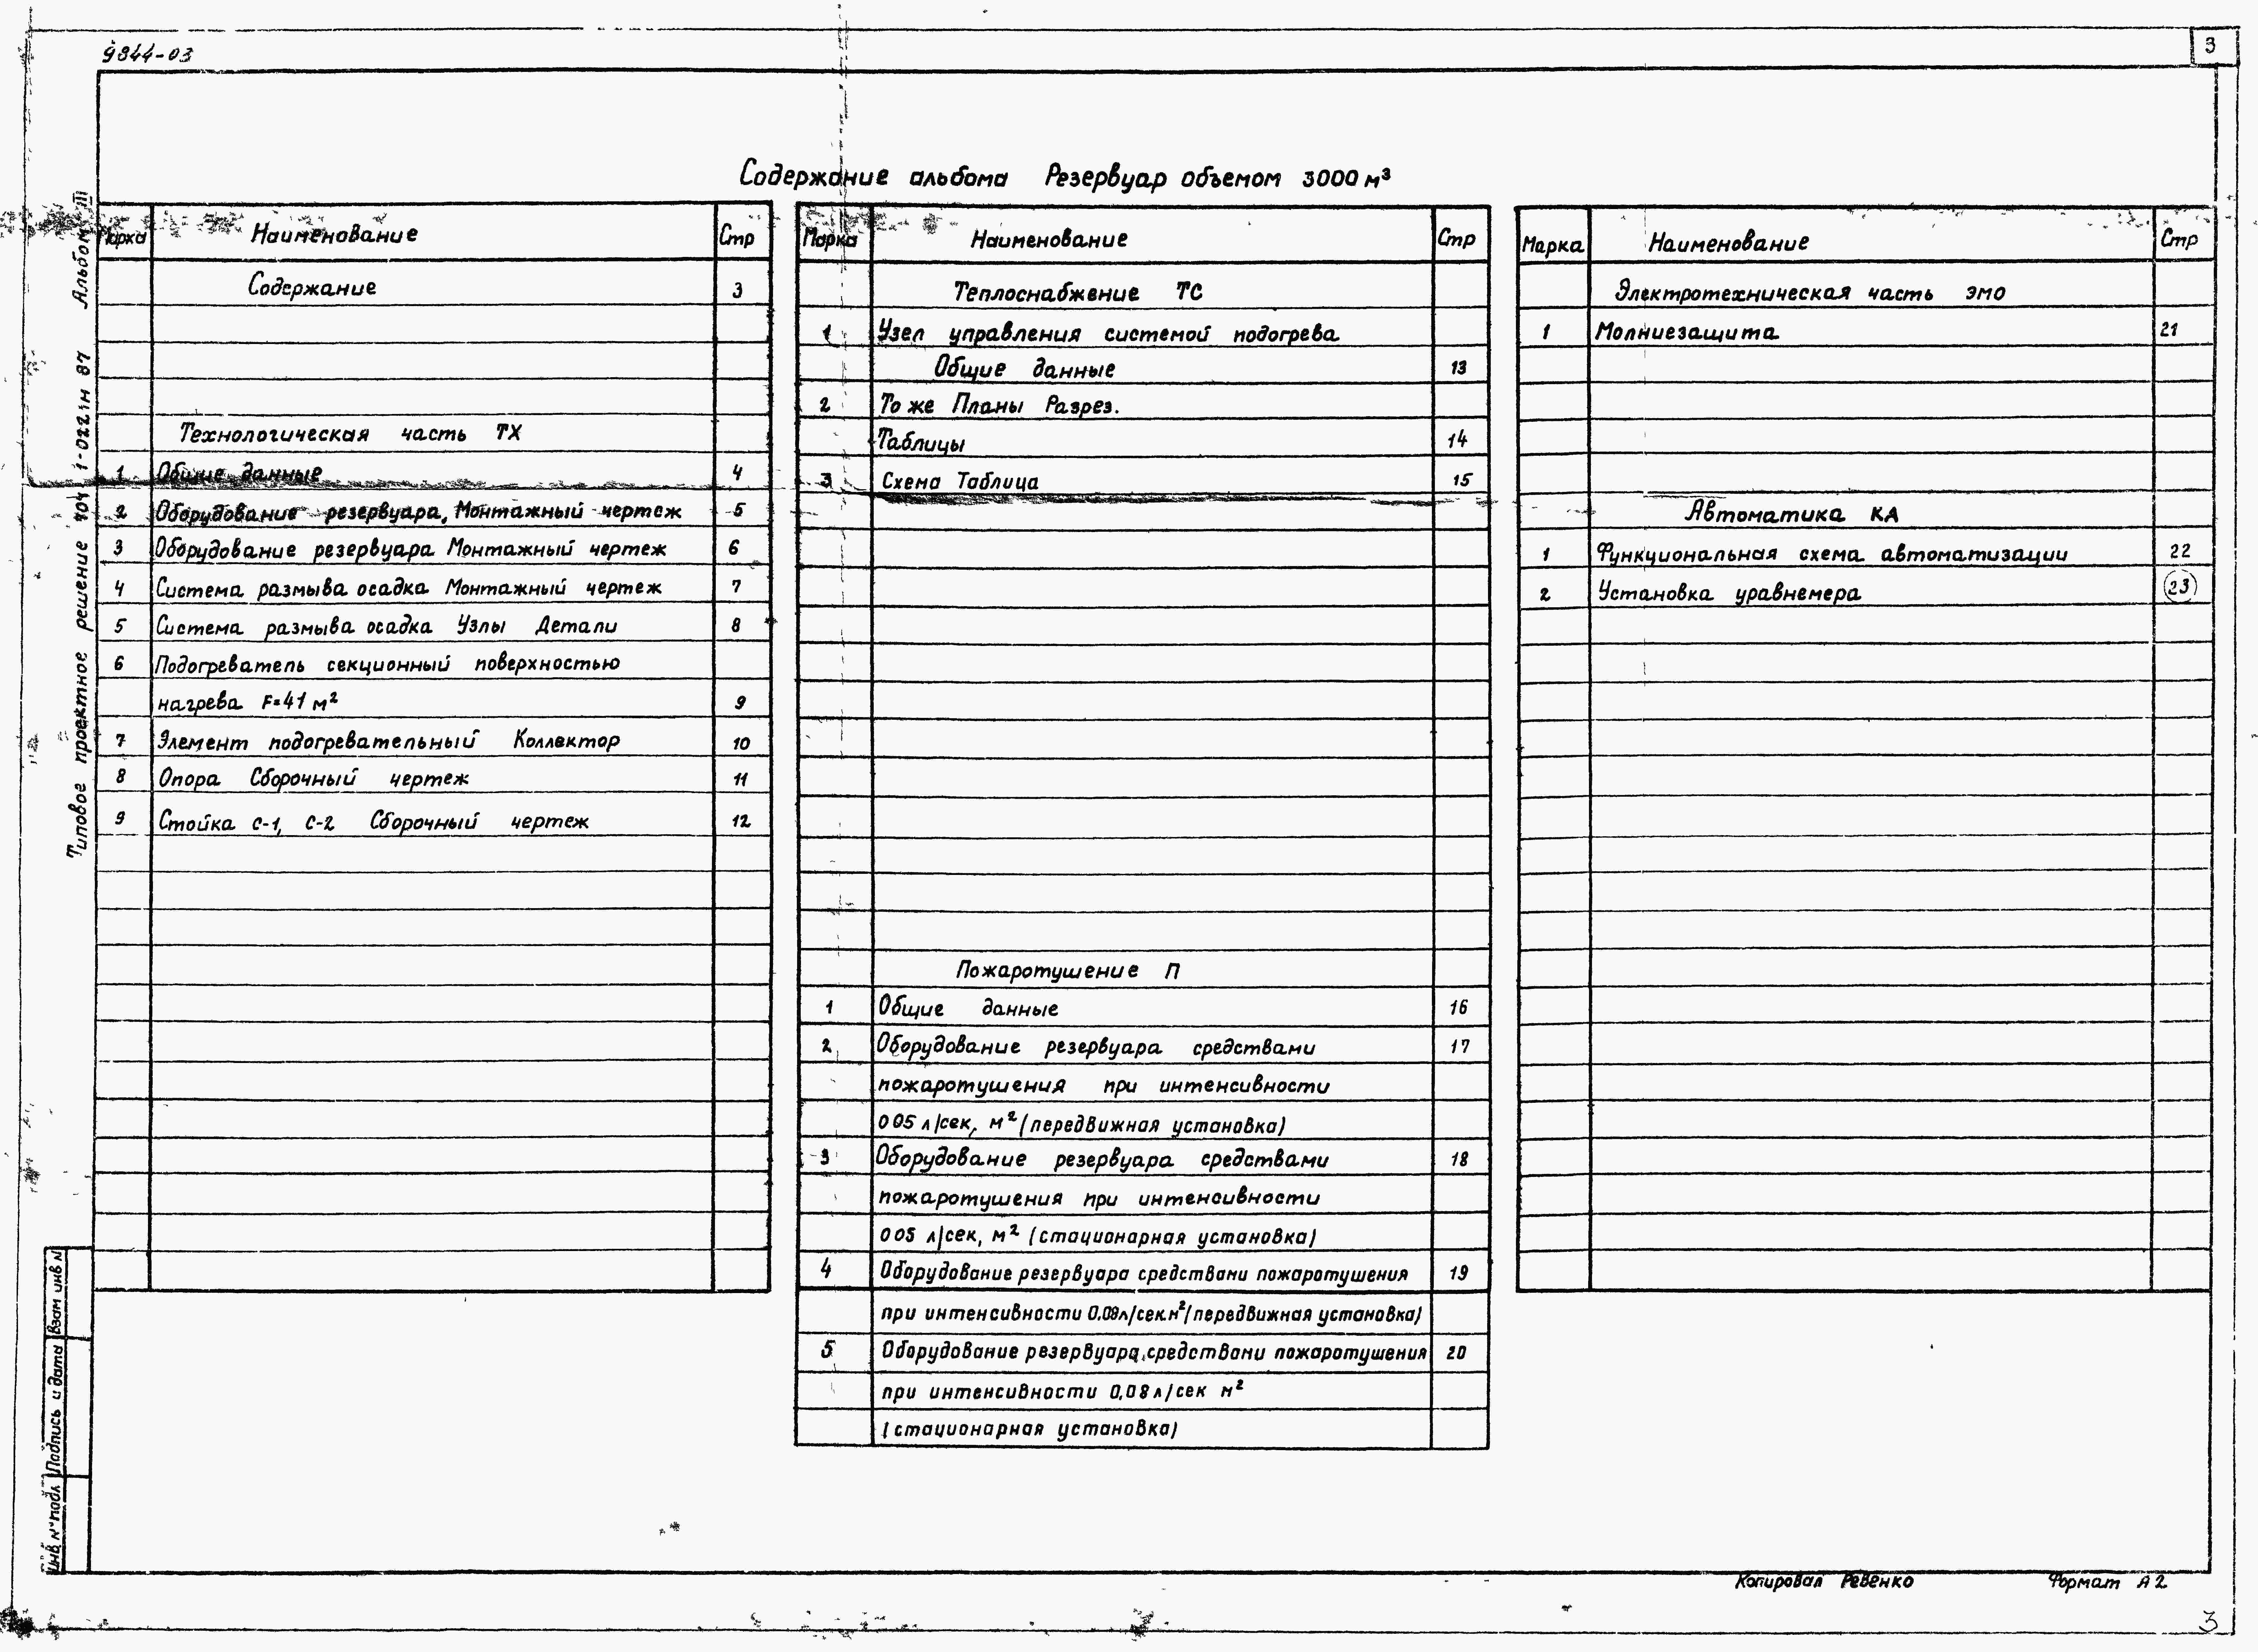 9844-03
3
Содержание альбома Резервуар объемом 3000 м³
Марка Наименование Стр
Содержание 3
Технологическая часть ТХ
1 Общие данные 4
2 Оборудование резервуара, Монтажный чертеж 5
3 Оборудование резервуара Монтажный чертеж 6
4 Система размыва осадка Монтажный чертеж 7
5 Система размыва осадка Узлы Детали 8
6 Подогреватель секционный поверхностью
нагрева F=41 м² 9
7 Элемент подогревательный Коллектор 10
8 Опора Сборочный чертеж 11
9 Стойка С-1, С-2 Сборочный чертеж 12
Марка Наименование Стр
Теплоснабжение ТС
1 Узел управления системой подогрева
Общие данные 13
2 То же Планы Разрез.
Таблицы 14
3 Схема Таблица 15
Пожаротушение П
1 Общие данные 16
2 Оборудование резервуара средствами 17
пожаротушения при интенсивности
005 л/сек, м² (передвижная установка)
3 Оборудование резервуара средствами 18
пожаротушения при интенсивности
005 л/сек, м² (стационарная установка)
4 Оборудование резервуара средствами пожаротушения 19
при интенсивности 0,08л/сек.м² (передвижная установка)
5 Оборудование резервуара средствами пожаротушения 20
при интенсивности 0,08 л/сек м²
(стационарная установка)
Марка Наименование Стр
Электротехническая часть ЭМО
1 Молниезащита 21
Автоматика КА
1 Функциональная схема автоматизации 22
2 Установка уравнемера 23
Типовое проектное решение 704-1-022 1м 87 Альбом III
Взам инв N
Подпись и дата
Инв N° подл
Копировал Ревенко Формат А2
3